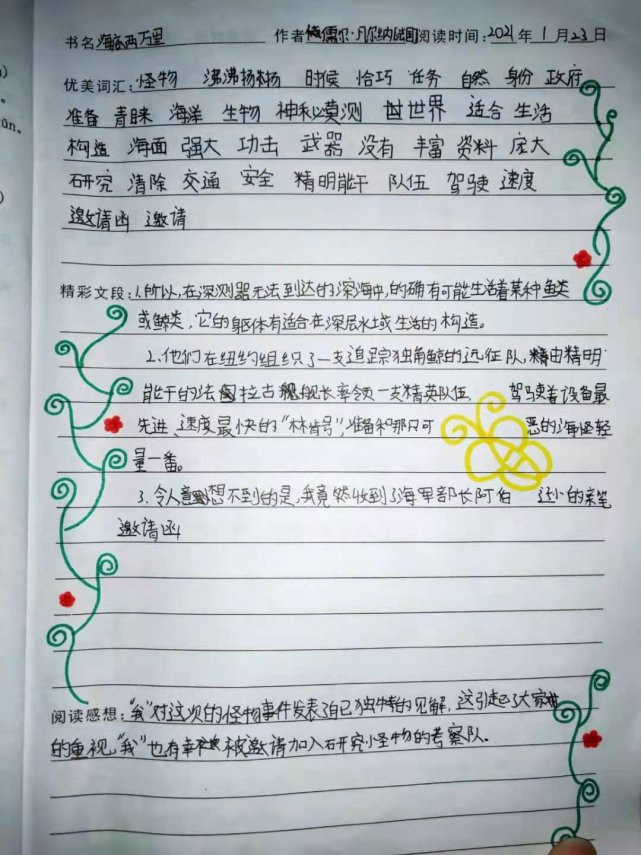 书名:海底两万里 作者:儒尔·凡尔纳(法国)阅读时间:2021年1月23日
优美词汇:怪物 沸沸扬扬 时候 恰巧 任务 自然 身份 政府
准备 青睐 海洋 生物 神秘莫测 世界 适合 生活
构造 海面 强大 功击 武器 没有 丰富 资料 庞大
研究 清除 交通 安全 精明能干 队伍 驾驶 速度
邀请函 邀请
精彩文段:1.所以,在深测器无法到达的深海中,的确有可能生活着某种鱼类
或鲸类,它的躯体有适合在深层水域生活的构造。
2.他们在纽约组织了一支追踪独角鲸的远征队,由精明
能干的法拉古舰长率领一支精英队伍 驾驶着设备最
先进、速度最快的“林肯号”,准备和那只可 恶的海怪轻
量一番。
3.令人意想不到的是,我竟然收到了海军部长阿伯 达小的亲笔
邀请函
阅读感想:“我”对这次的怪物事件发表了自己独特的见解,这引起了大家
的重视,“我”也有幸被邀请加入研究怪物的考察队。